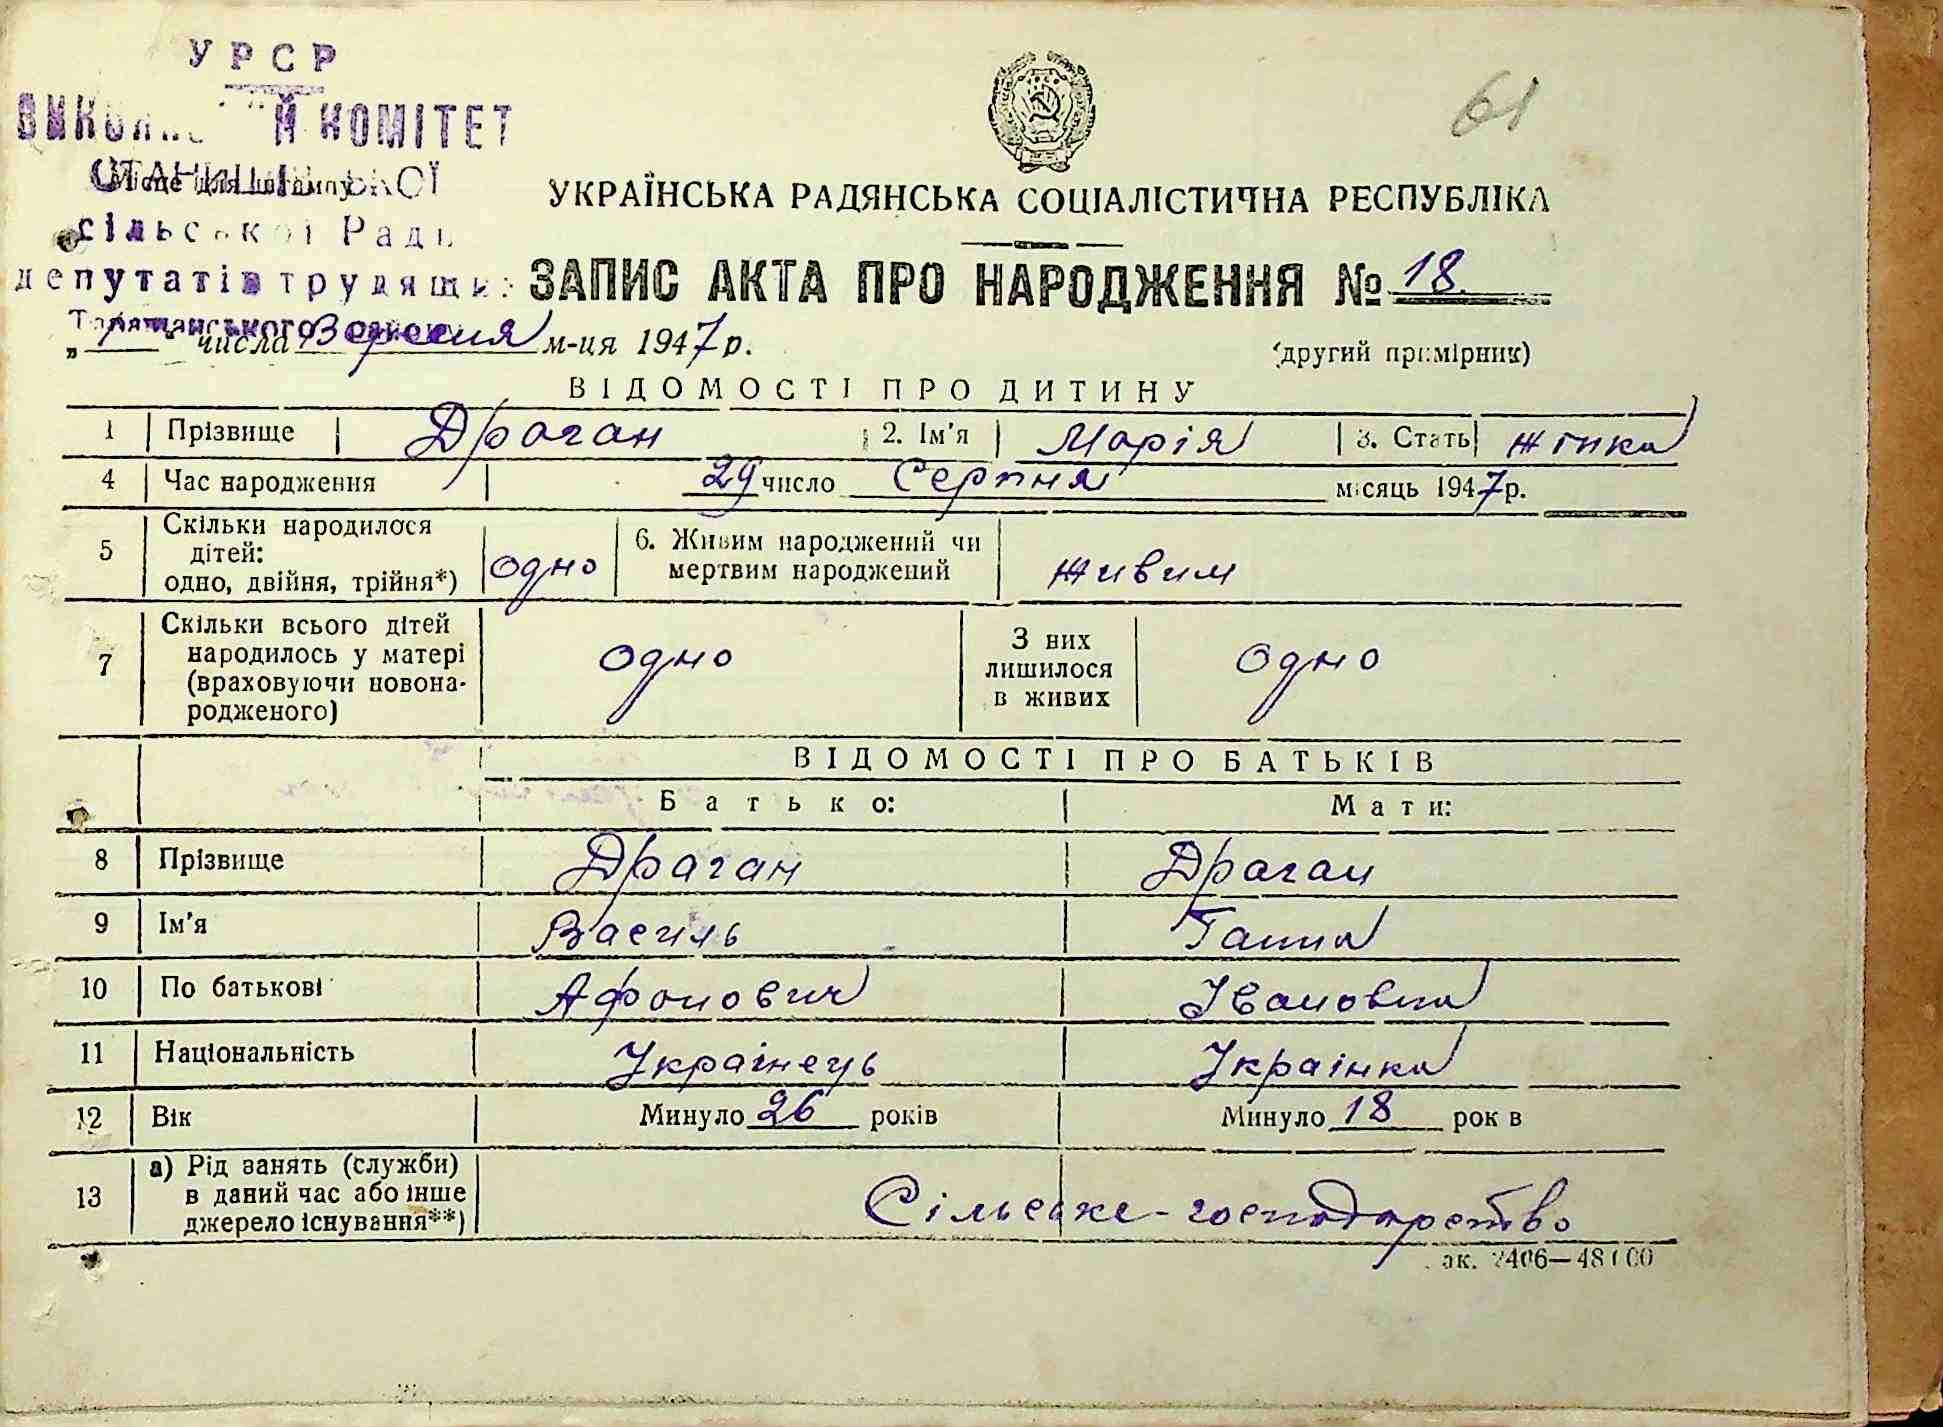 УРСР
Й КОМІТЕТ
Місце для штампу
сільської Ради
депутатів трудящих
61
УКРАЇНСЬКА РАДЯНСЬКА СОЦІАЛІСТИЧНА РЕСПУБЛІКА
ЗАПИС АКТА ПРО НАРОДЖЕННЯ № 18
Таращанського
числа Вересня м-ця 1947 р.
(другий примірник)
ВІДОМОСТІ ПРО ДИТИНУ
1 Прізвище Драган 2. Ім'я Марія 3. Стать жінка
4 Час народження 29 число Серпня місяць 1947 р.
5 Скільки народилося дітей: одно, двійня, трійня*) одно 6. Живим народжений чи мертвим народжений живим
7 Скільки всього дітей народилось у матері (враховуючи новонародженого) одно З них лишилося в живих одно
ВІДОМОСТІ ПРО БАТЬКІВ
Батько: Мати:
8 Прізвище Драган Драган
9 Ім'я Василь Ганна
10 По батькові Афонович Івановна
11 Національність Українець Українка
12 Вік Минуло 26 років Минуло 18 років
13 а) Рід занять (служби) в даний час або інше джерело існування**) Сільске-господарство